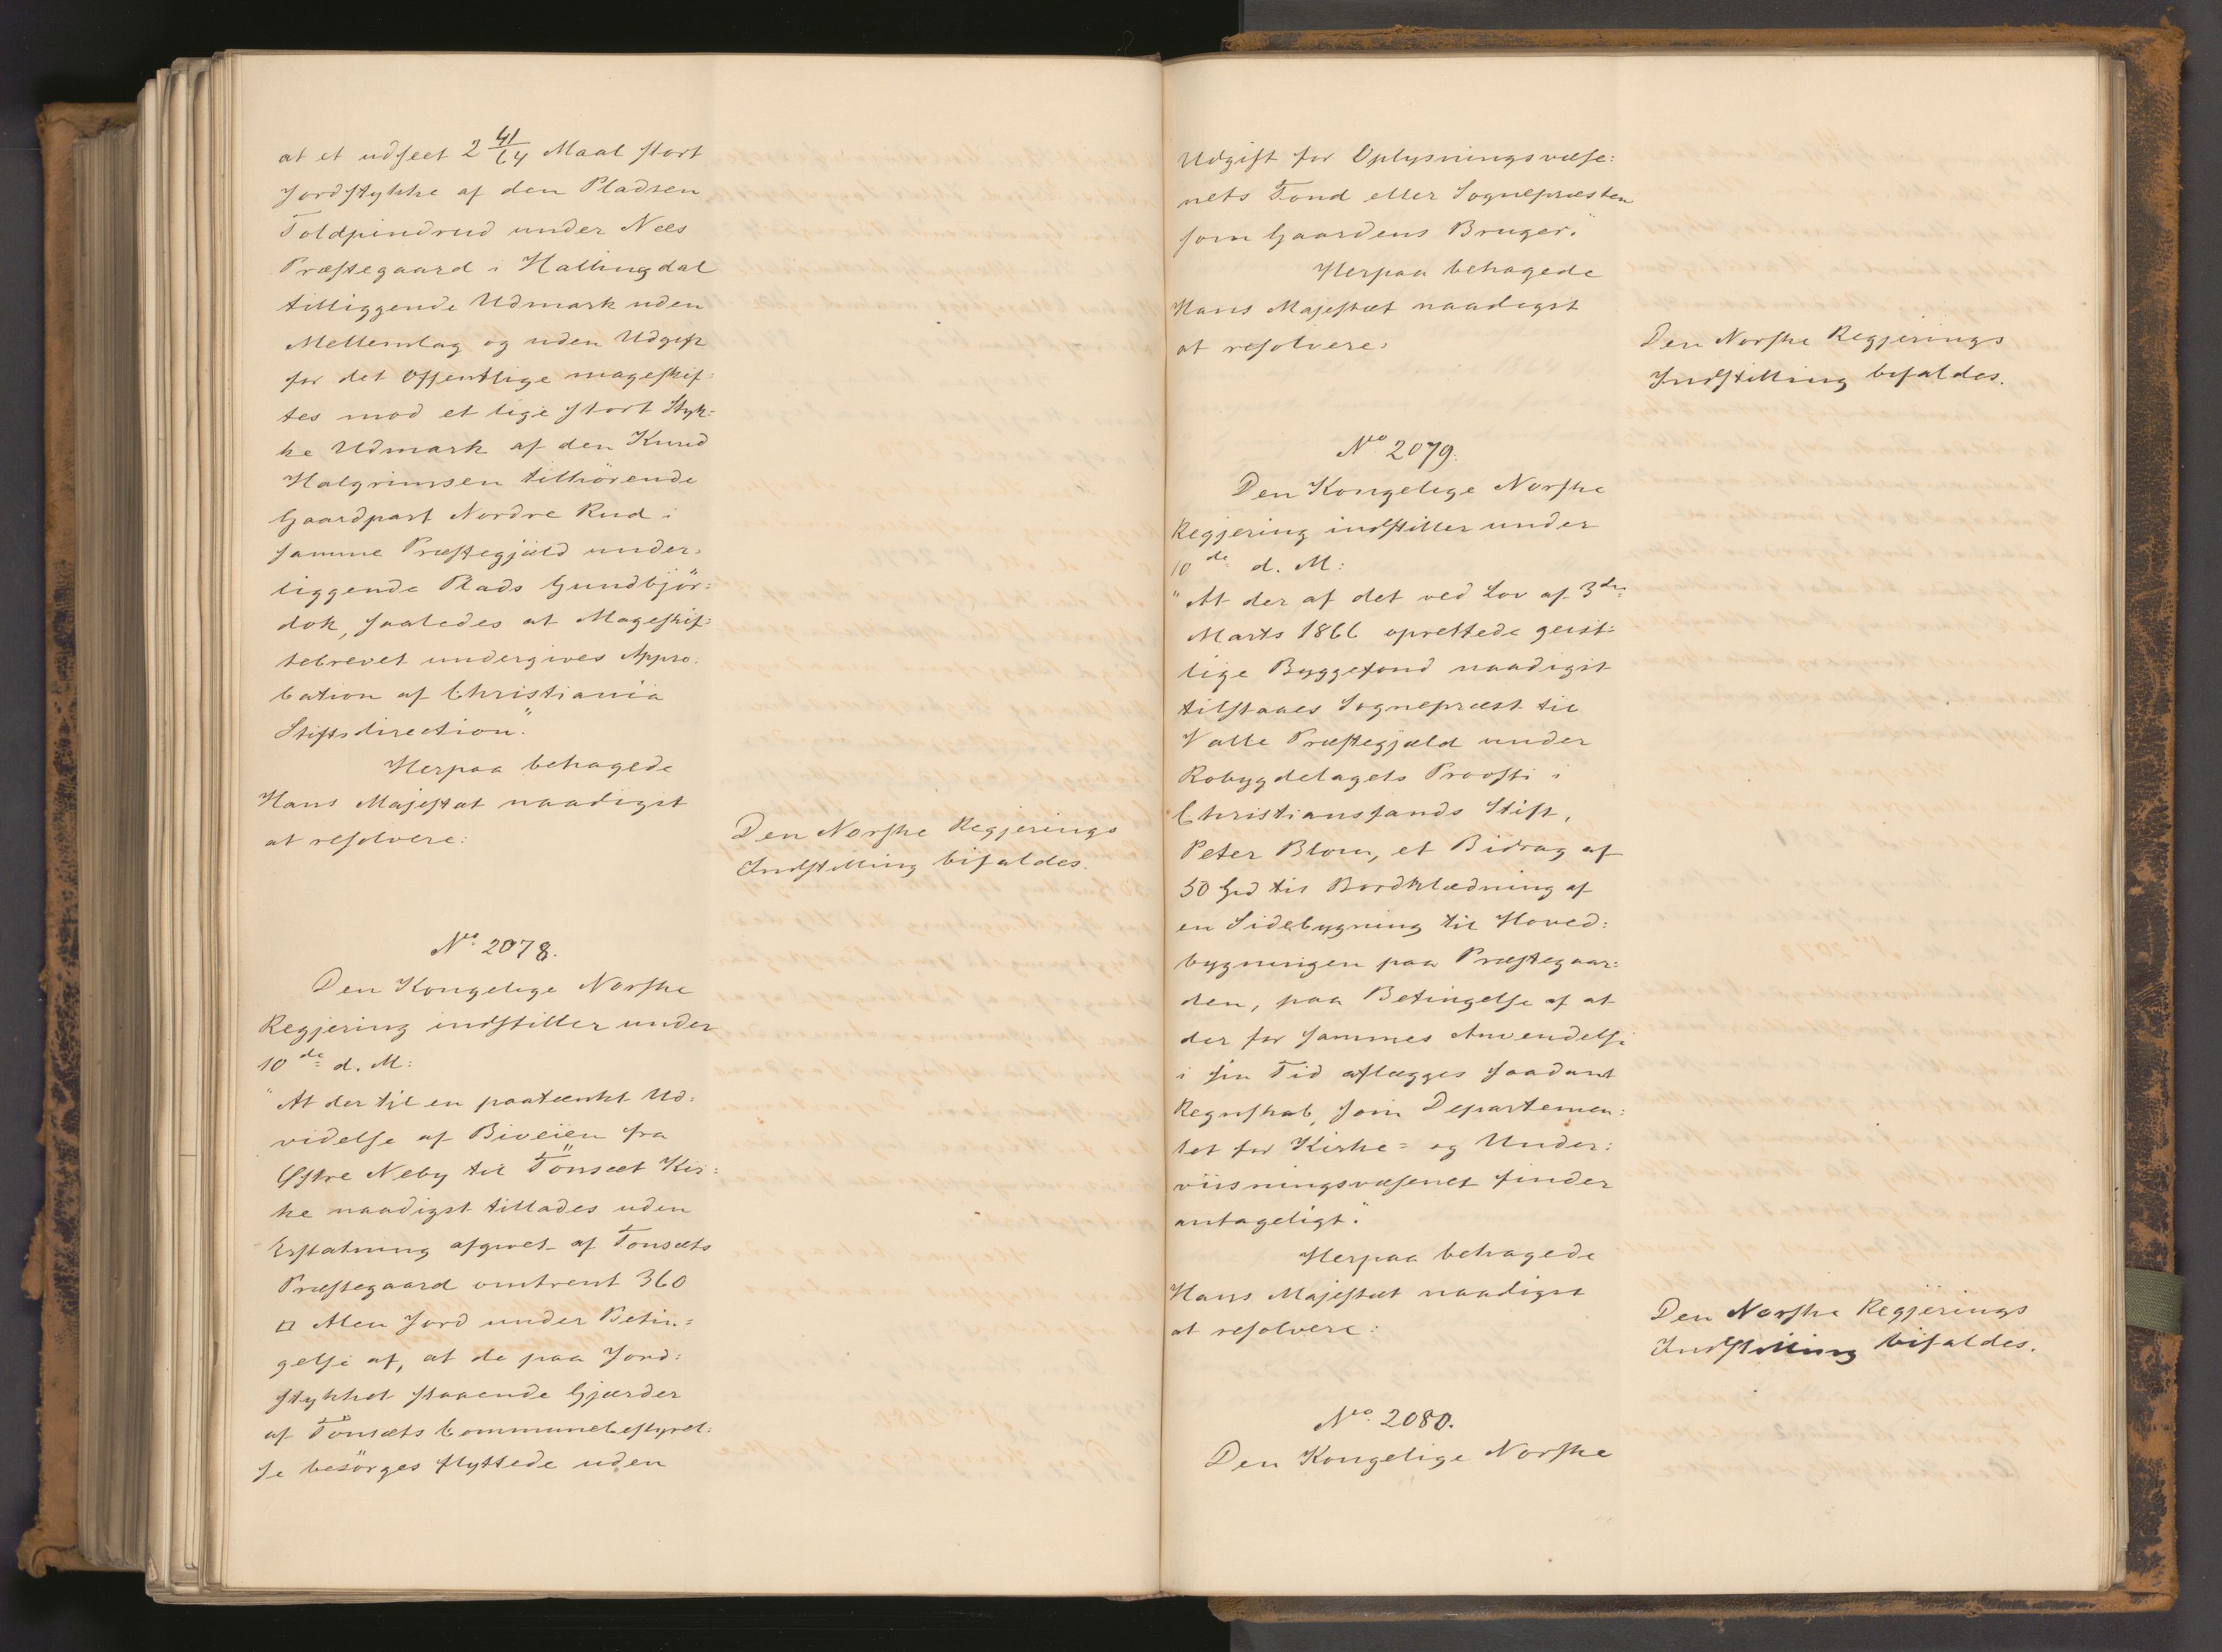 at et udseet 2 41/64 Maal stort
Jordstykke af den Pladsen
Toldpindrud under Nees
Præstegaard i Hallingdal
tilliggende Udmark uden
Mellemlag og uden Udgift
for det Offentlige mageskif:
tes mod et lige stort Styk:
ke Udmark af den Knud
Halgrimsen tilhörende
Gaardpart Nordre Rud i
samme Præstegjæld under:
liggende Plads Gundbjör:
dok, saaledes at Mageskif:
tebrevet undergives Appro:
bation af Christiania
Stiftsdirection."
Herpaa behagede
Hans Majestæt naadigst
at resolvere:
Den Norske Regjerings
Indstilling bifaldes.
No. 2078.
Den Kongelige Norske
Regjering indstiller under
10de d. M:
"At der til en paatænkt Ud:
videlse af Biveien fra
Østre Neby til Tönset Kir:
ke naadigst tillades uden
Erstatning afgivet af Tönsets
Præstegaard omtrent 360
□ Alen Jord under Betin:
gelse af, at de paa Jord:
stykket staaende Gjærder
af Tönsets Communebestyrel:
se besörges flyttede uden
Udgift for Oplysningsvæse:
nets Fond eller Sognepræsten
som Gaardens Bruger."
Herpaa behagede
Hans Majestæt naadigst
at resolvere:
Den Norske Regjerings
Indstilling bifaldes.
No. 2079.
Den Kongelige Norske
Regjering indstiller under
10de d. M:
"At der af det ved Lov af 3die
Marts 1866 oprettede geist:
lige Byggefond naadigst
tilstaaes Sognepræst til
Valle Præstegjæld under
Robygdelagets Provsti i
Christianssands Stift,
Peter Blom, et Bidrag af
50 Spd til Bordklædning af
en Sidebygning til Hoved:
bygningen paa Præstegaar:
den, paa Betingelse af at
der for sammes Anvendelse
i sin Tid aflægges saadant
Regnskab, som Departemen:
tet for Kirke= og Under:
viisningsvæsenet finder
antageligt."
Herpaa behagede
Hans Majestæt naadigst
at resolvere:
Den Norske Regjerings
Indstilling bifaldes.
No. 2080.
Den Kongelige Norske